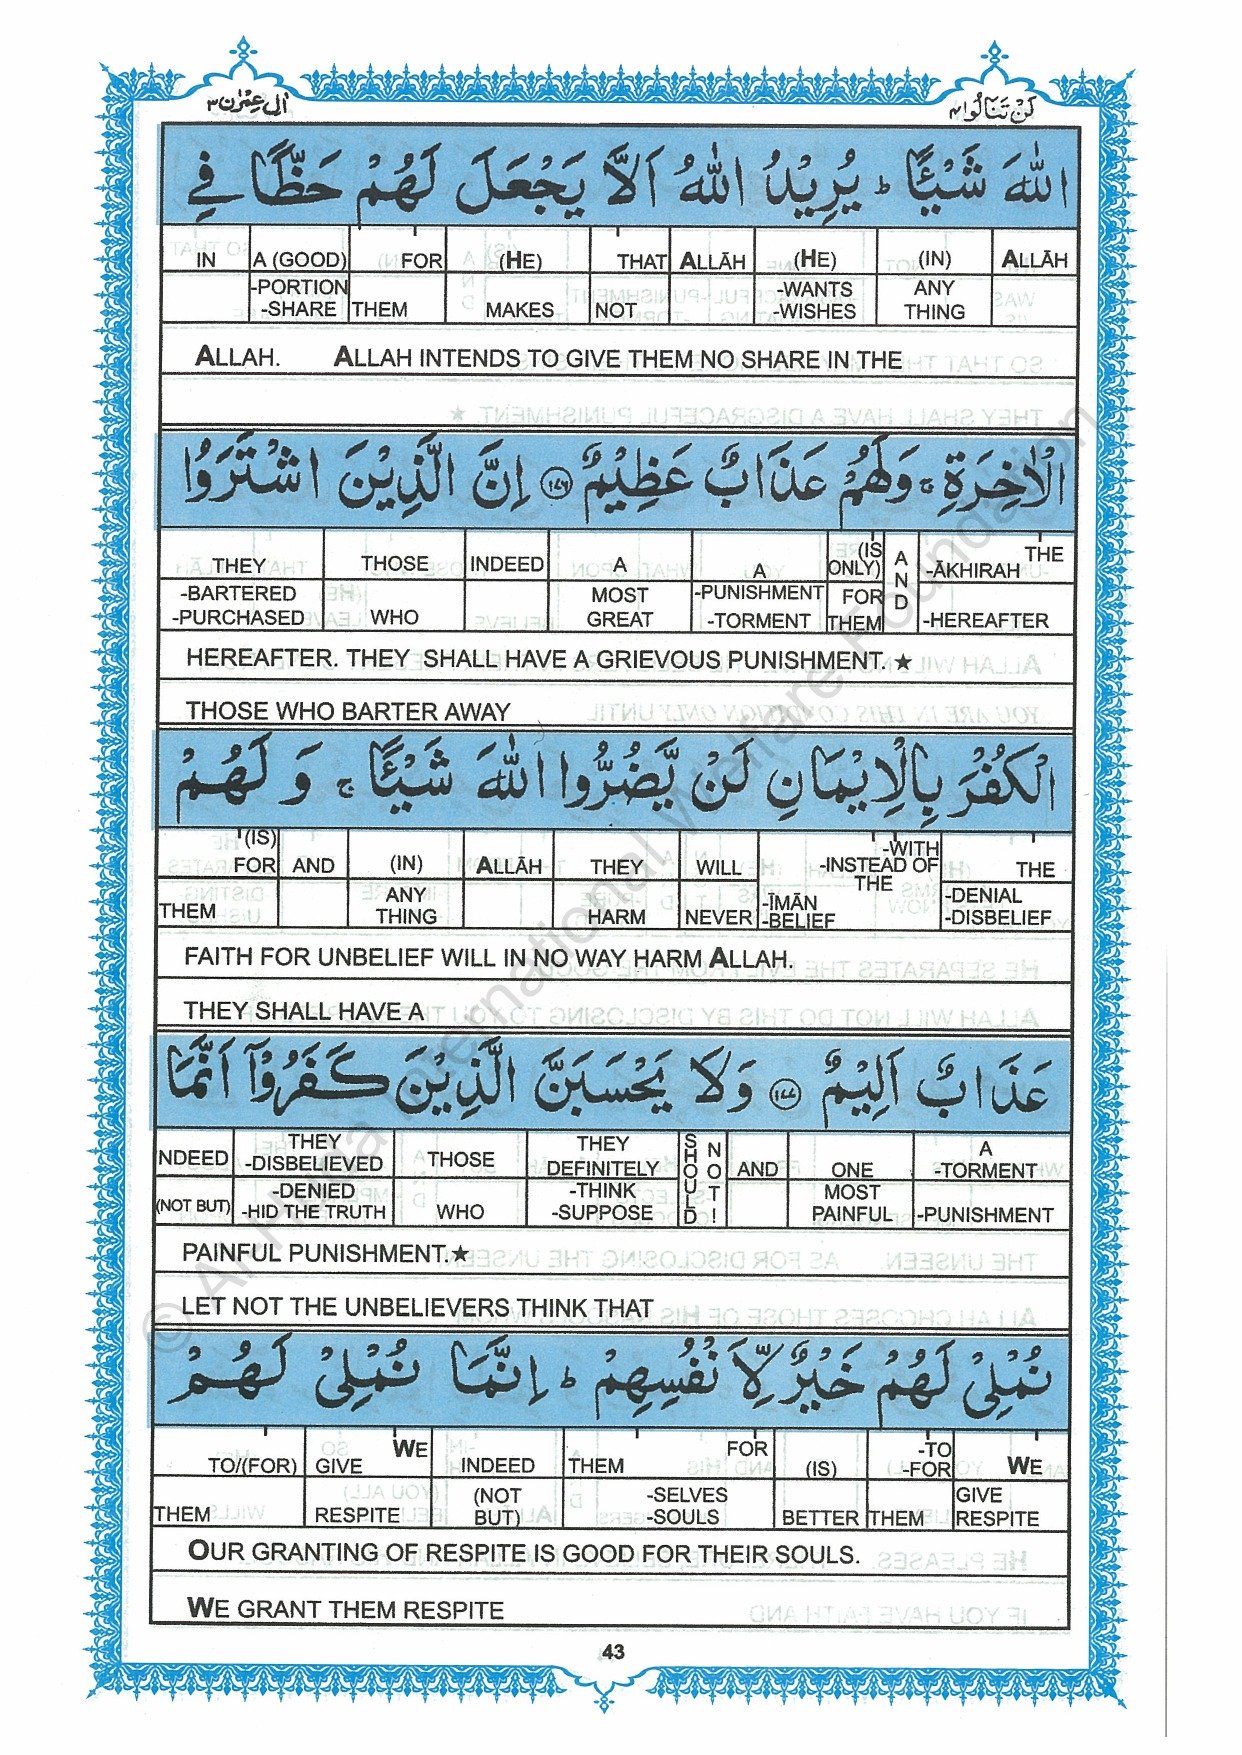 اٰل عمرٰن ۳
لن تنالوا ۴
اللّٰهَ شَيْـًٔا ؕ يُرِيْدُ اللّٰهُ اَلَّا يَجْعَلَ لَهُمْ حَظًّا فِي
IN A (GOOD) FOR (HE) THAT ALLĀH (HE) (IN) ALLĀH
-PORTION -WANTS ANY
-SHARE THEM MAKES NOT -WISHES THING
ALLAH. ALLAH INTENDS TO GIVE THEM NO SHARE IN THE
الْاٰخِرَةِ ۚ وَلَهُمْ عَذَابٌ عَظِيْمٌ ﴿۱۷۶﴾ اِنَّ الَّذِيْنَ اشْتَرَوُا
THEY THOSE INDEED A A (IS ONLY) AND THE -ĀKHIRAH
-BARTERED MOST -PUNISHMENT FOR
-PURCHASED WHO GREAT -TORMENT THEM -HEREAFTER
HEREAFTER. THEY SHALL HAVE A GRIEVOUS PUNISHMENT.★
THOSE WHO BARTER AWAY
الْكُفْرَ بِالْاِيْمَانِ لَنْ يَّضُرُّوا اللّٰهَ شَيْـًٔا ۚ وَلَهُمْ
(IS) -WITH
FOR AND (IN) ALLĀH THEY WILL -INSTEAD OF THE THE
ANY -ĪMĀN -DENIAL
THEM THING HARM NEVER -BELIEF -DISBELIEF
FAITH FOR UNBELIEF WILL IN NO WAY HARM ALLAH.
THEY SHALL HAVE A
عَذَابٌ اَلِيْمٌ ﴿۱۷۷﴾ وَلَا يَحْسَبَنَّ الَّذِيْنَ كَفَرُوْۤا اَنَّمَا
NDEED THEY THOSE THEY SHOULD NOT! AND ONE A
-DISBELIEVED DEFINITELY -TORMENT
(NOT BUT) -DENIED WHO -THINK MOST
-HID THE TRUTH -SUPPOSE PAINFUL -PUNISHMENT
PAINFUL PUNISHMENT.★
LET NOT THE UNBELIEVERS THINK THAT
نُمْلِيْ لَهُمْ خَيْرٌ لِّاَنْفُسِهِمْ ؕ اِنَّمَا نُمْلِيْ لَهُمْ
WE FOR -TO
TO/(FOR) GIVE INDEED THEM (IS) -FOR WE
(NOT -SELVES GIVE
THEM RESPITE BUT) -SOULS BETTER THEM RESPITE
OUR GRANTING OF RESPITE IS GOOD FOR THEIR SOULS.
WE GRANT THEM RESPITE
43
© Al-Huda International Welfare Foundation